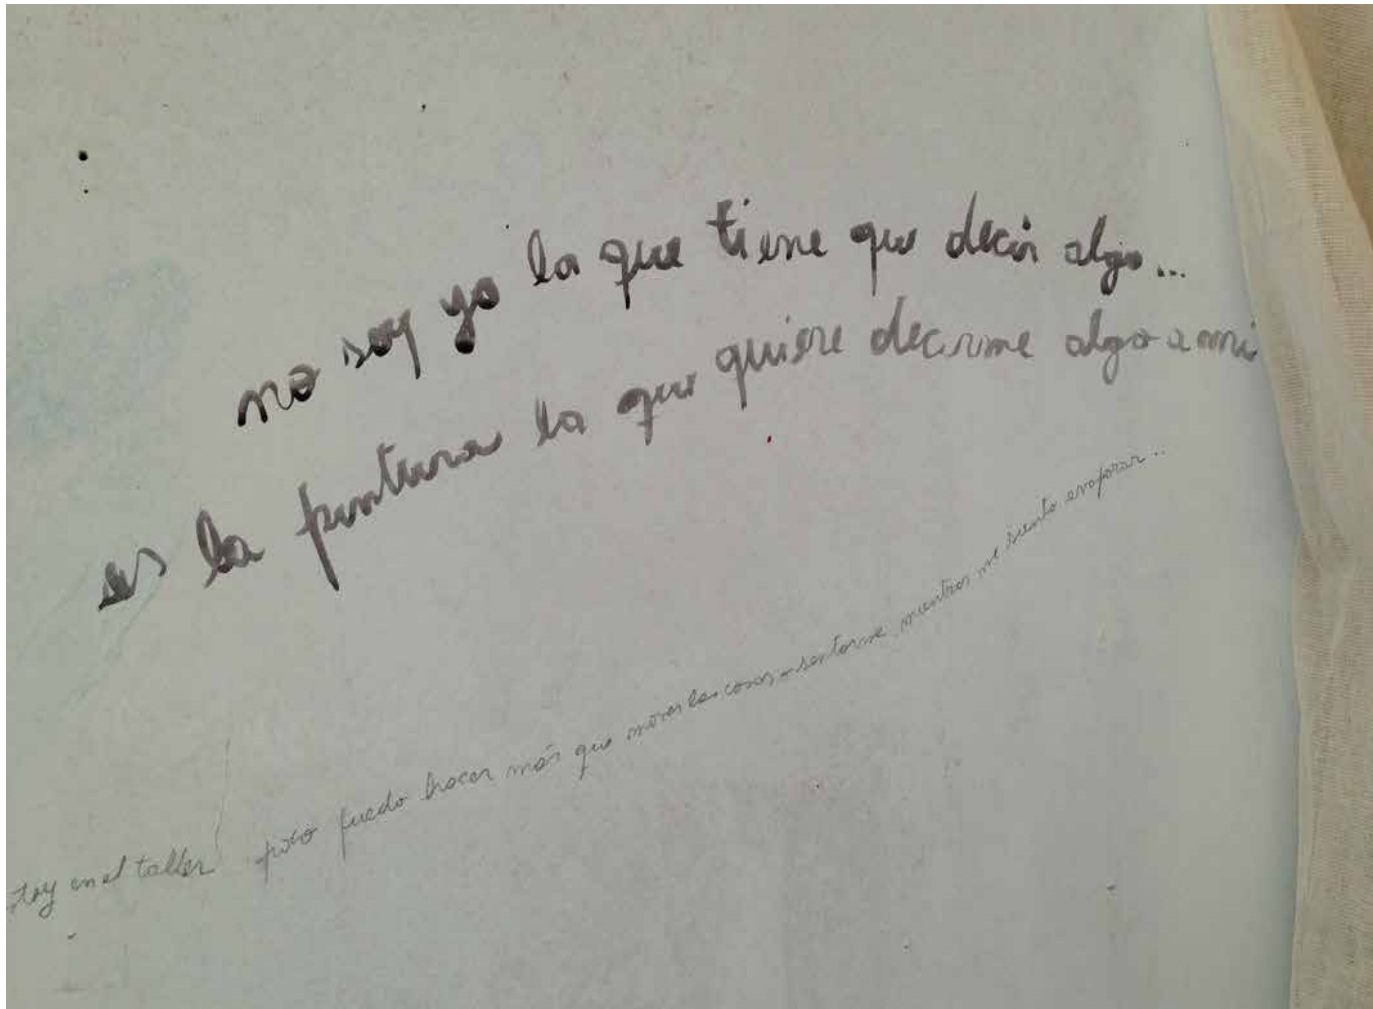 no soy yo la que tiene que decir algo...
es la pintura la que quiere decirme algo a mi
stoy en el taller poco puedo hacer más que mover las cosas o sentarme mientras me siento evaporar...